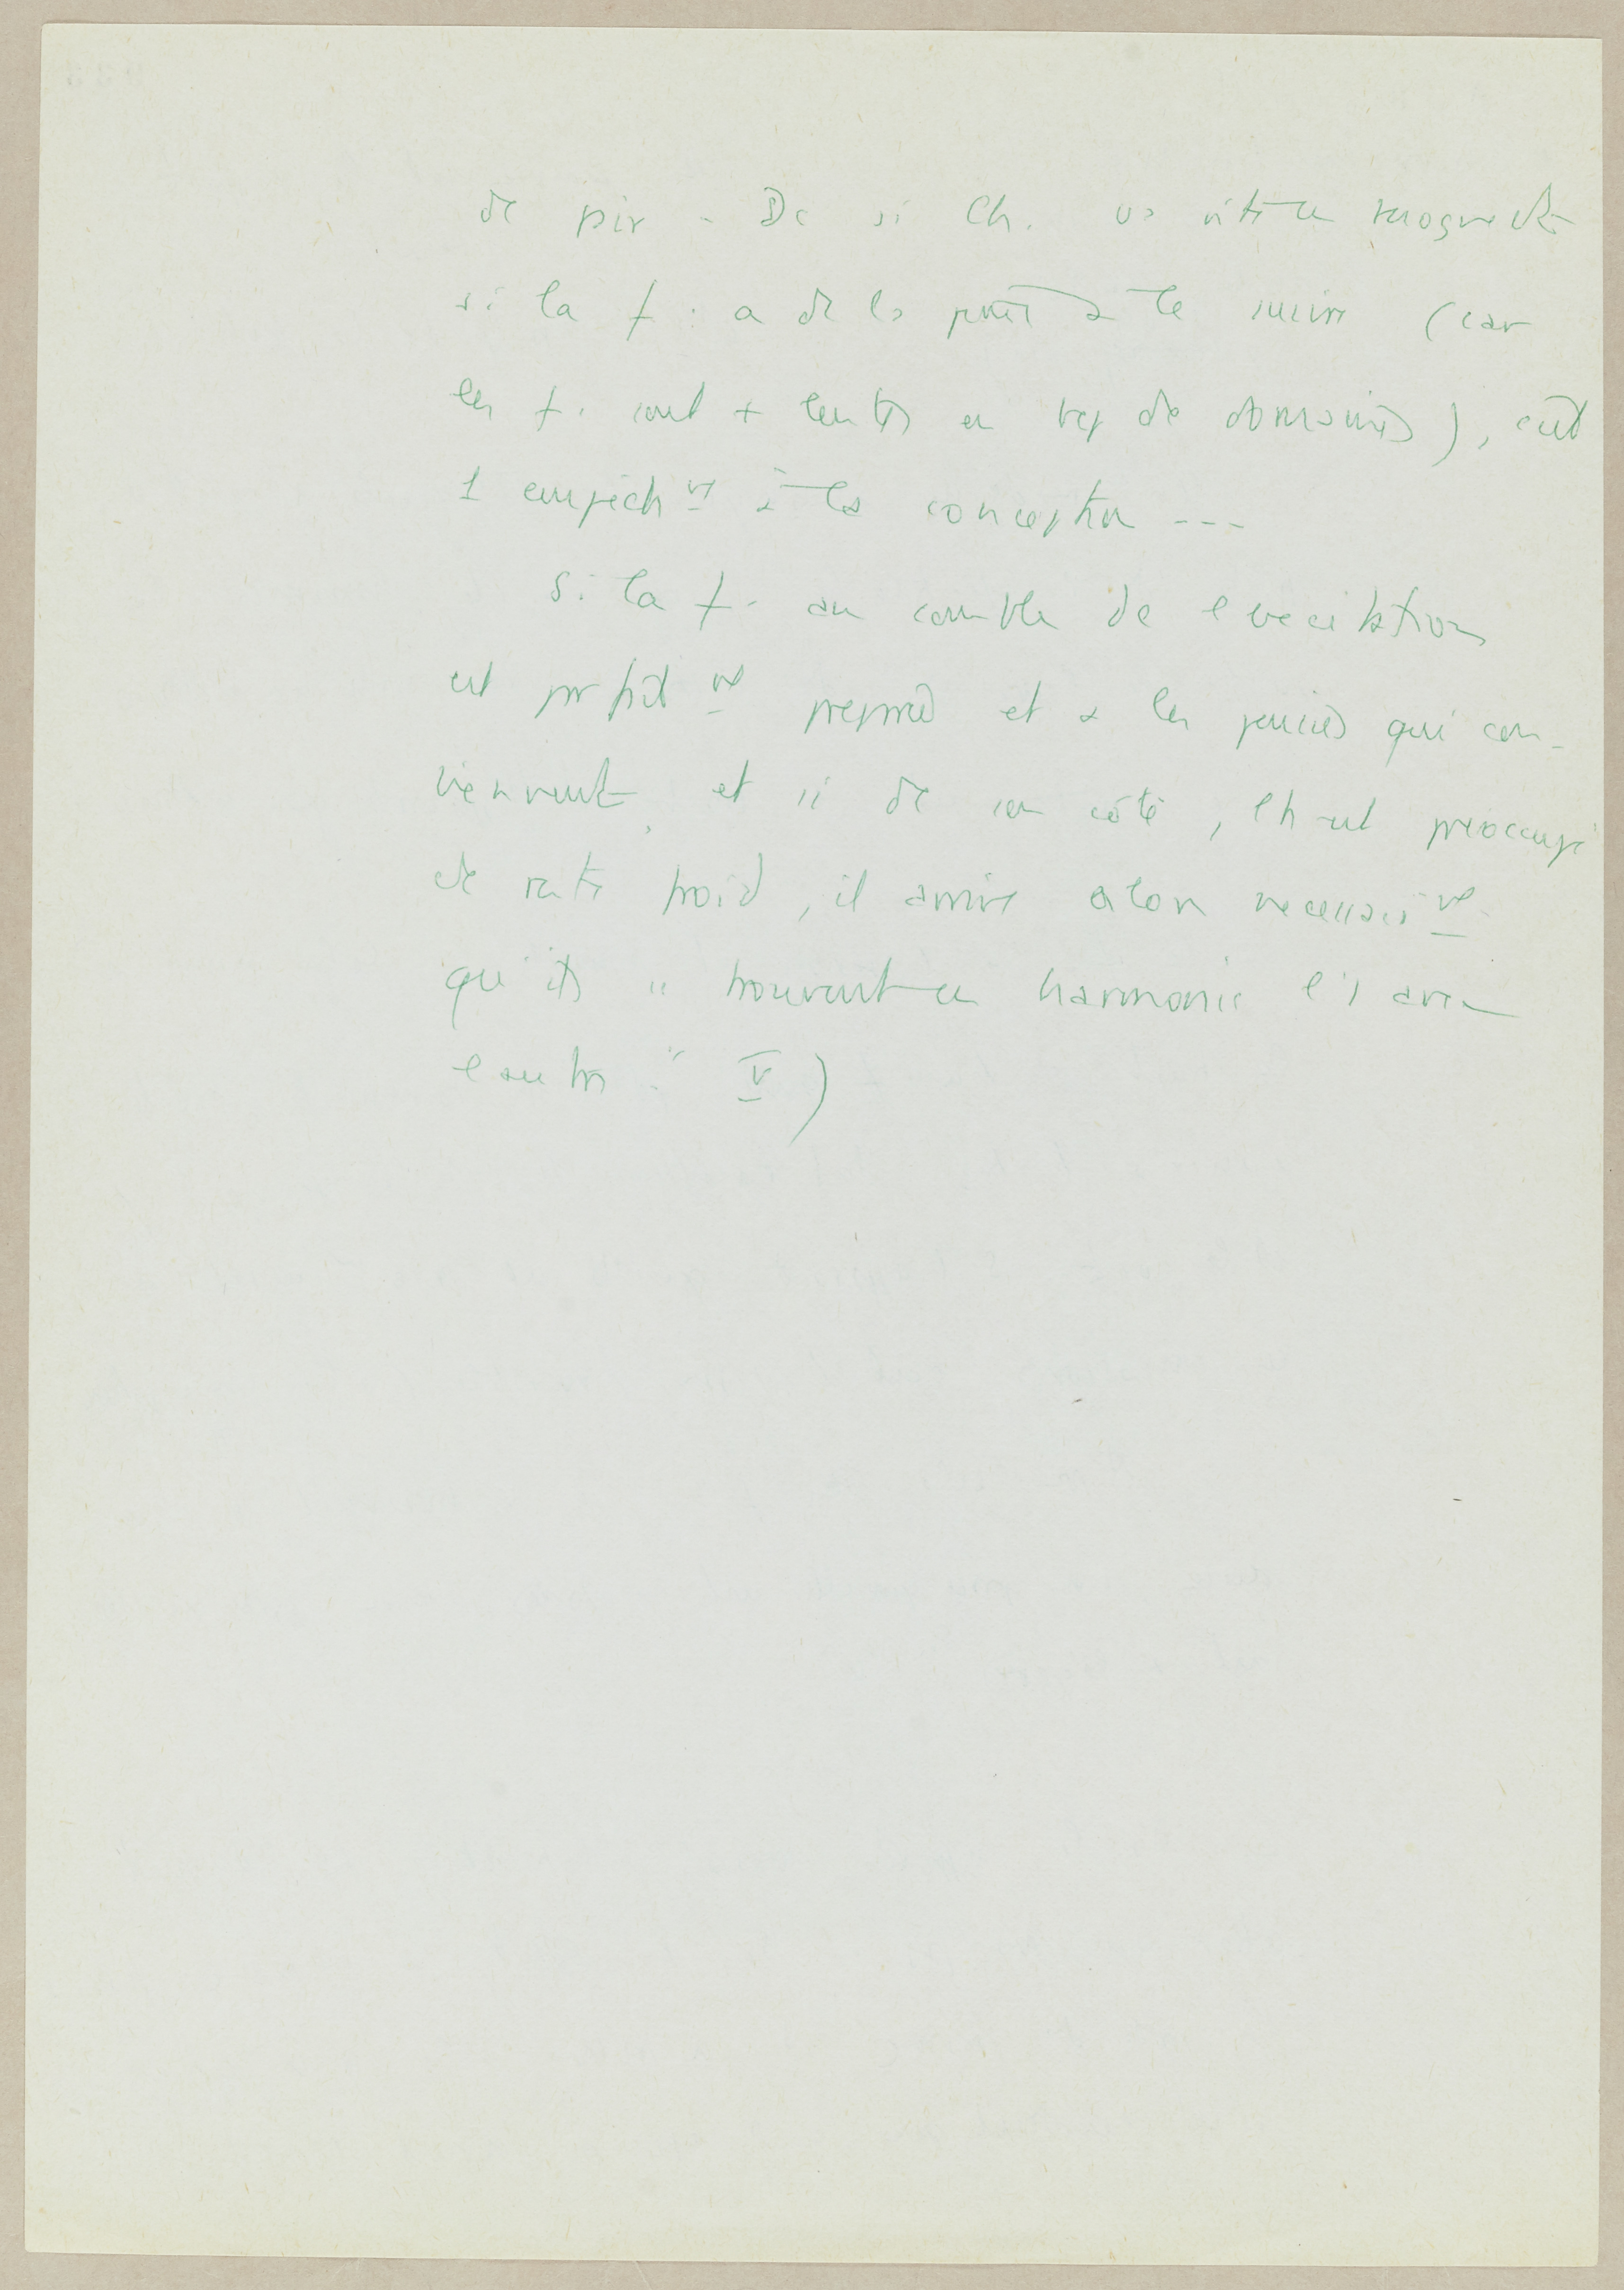 de   . Dc si l'h. va vite en      
si la f. a de la        à le suivre (car
les f. sont + lentes en      de domaines), c'est
1 empêchᵗ à la conception ---
Si la f. au comble de l'excitation
est parfaitᵗ préparée et a les pensées qui con-
viennent, et si de son côté, l'h est préoccupé
de rester froid, il arrive alors nécessairᵗ
qu'ils se trouvent en harmonie l'1 avec
l'autre." V)